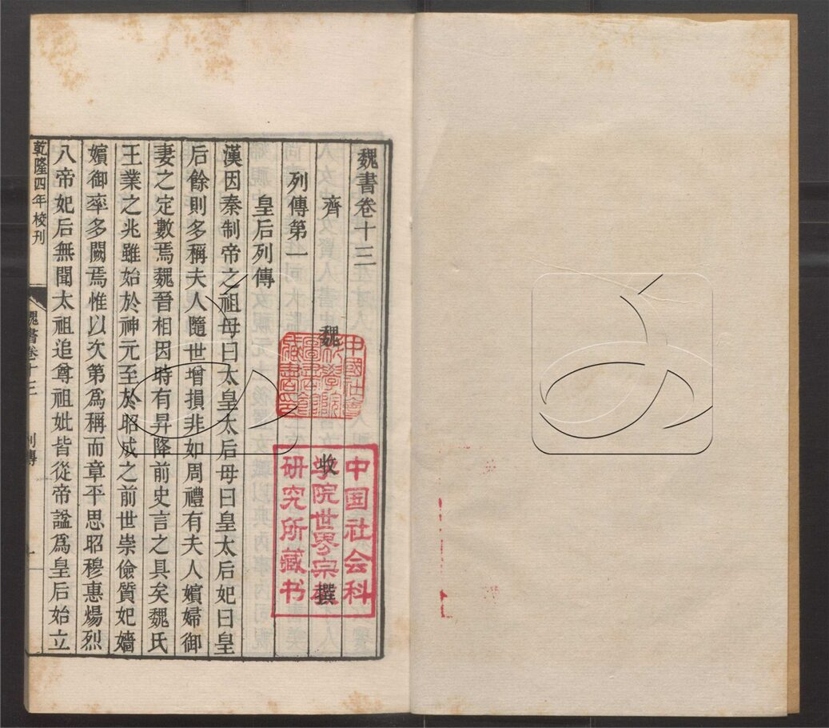 魏書卷十三
齊 魏 收 撰
列傳第一
皇后列傳
漢因秦制帝之祖母曰太皇太后母曰皇太后妃曰皇
后餘則多稱夫人隨世增損非如周禮有夫人嬪婦御
妻之定數焉魏晉相因時有昇降前史言之具矣魏氏
王業之兆雖始於神元至於昭成之前世崇儉質妃嬙
嬪御率多闕焉惟以次第為稱而章平思昭穆惠煬烈
八帝妃后無聞太祖追尊祖妣皆從帝諡為皇后始立
乾隆四年校刊
魏書卷十三 列傳 一
中國社會
科學院
圖書館
藏書印
中国社会科
学院世界宗教
研究所藏书